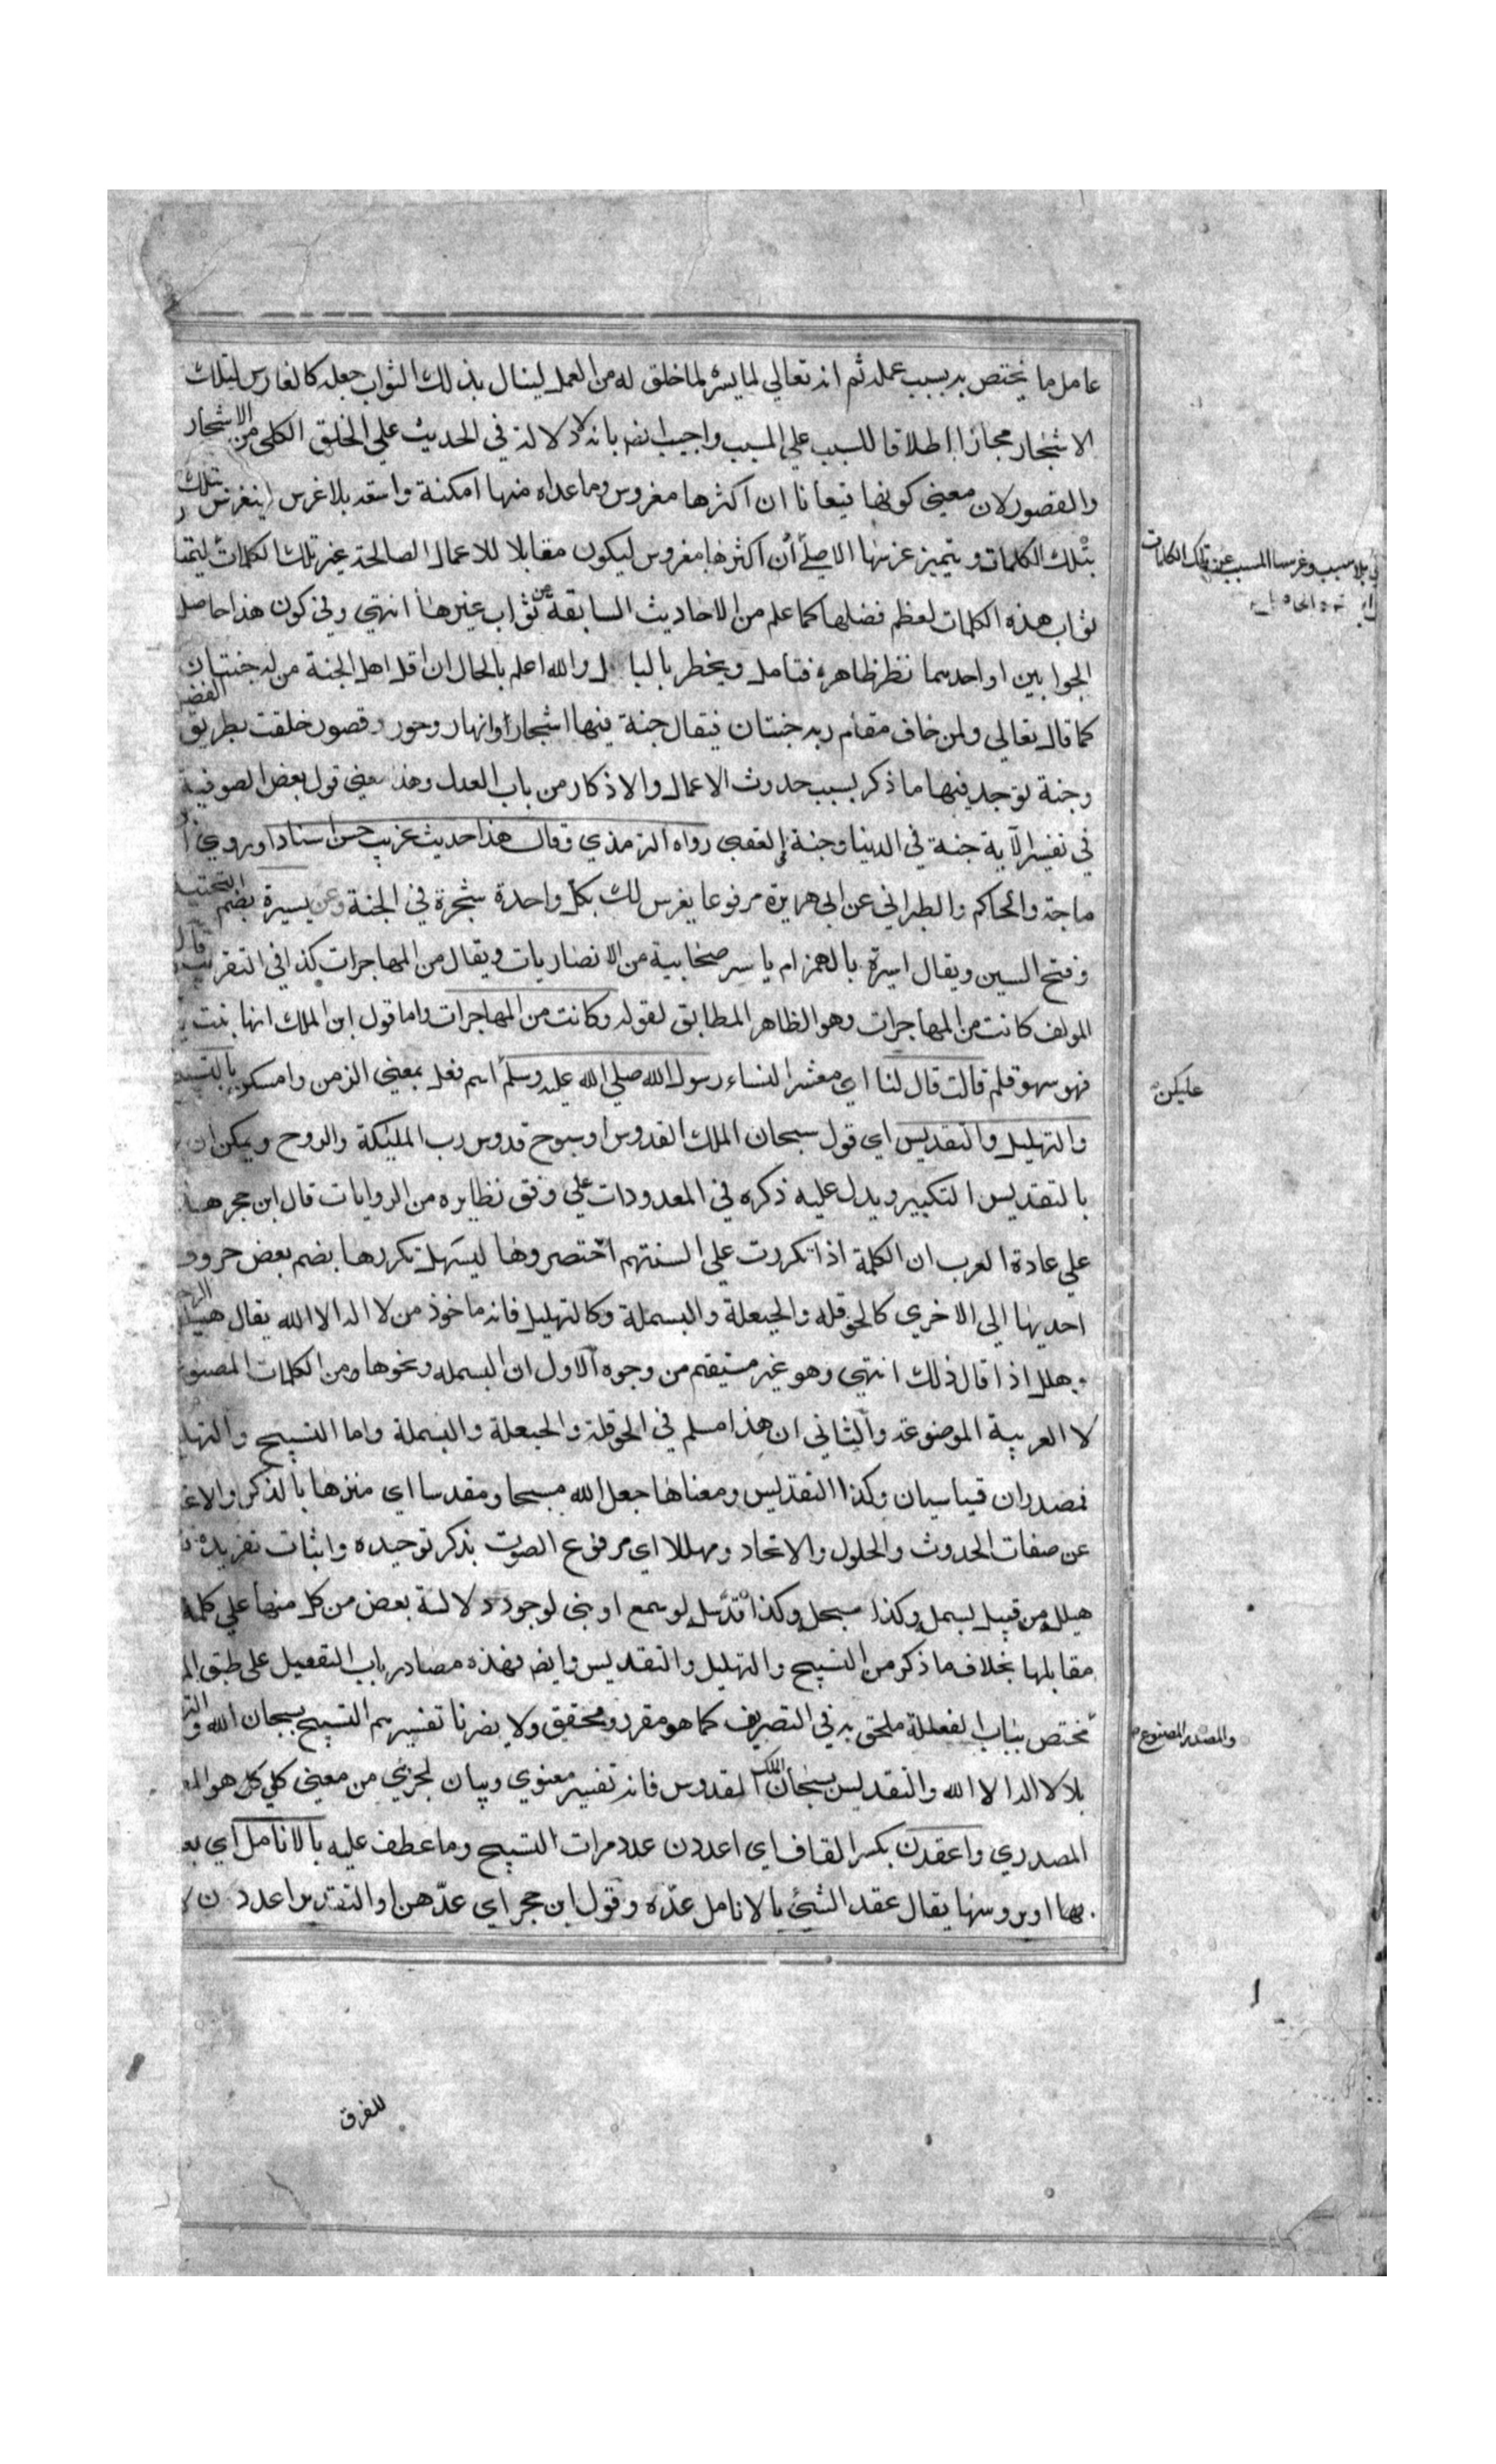 عامل ما يختص به بسبب عمله ثم انه تعالي لما يسره لما خلق له من العمل لينال بذلك الثواب جعله كالغارس لتلك
الاشجار مجازا اطلاقا للسبب علي المسبب واجيب ايضا بانه لا دلالة في الحديث علي الخلو الكلي من الاشجار
والقصور لان معني كونها قيعانا ان اكثرها مغروس وما عداه منها امكنة واسعة بلا غرس لينغرس بتلك
بتلك الكلمات ويتميز غرسها الاصلي أن اكثرها مغروس ليكون مقابلا للاعمال الصالحة غير تلك الكلمات ليتميز
ثواب هذه الكلمات لعظم فضلها كما علم من الاحاديث السابقة عن ثواب غيرها انتهي وفي كون هذا حاصل
الجوابين او احدهما نظر ظاهر فتامل ويخطر بالبال والله اعلم بالحال ان اقل اهل الجنة من له جنتان
كما قال تعالي ولمن خاف مقام ربه جنتان فيقال جنة فيها اشجار وانهار وحور وقصور خلقت بطريق الفضل
وجنة يوجد فيها ما ذكر بسبب حدوث الاعمال والاذكار من باب العدل وهذا معني قول بعض الصوفية
في تفسير الآية جنة في الدنيا وجنة في العقبي رواه الترمذي وقال هذا حديث غريب حسن اسنادا وروي
ماجة والحاكم والطبراني عن ابي هريرة مرفوعا يغرس لك بكل واحدة شجرة في الجنة وعن يسيرة بضم التحتية
وفتح السين ويقال اسيرة بالهمز ام ياسر صحابية من الانصاريات ويقال من المهاجرات كذا في التقريب قال
المولف كانت من المهاجرات وهو الظاهر المطابق لقوله وكانت من المهاجرات واما قول ابن الملك انها بنت
فهو سهو قلم قالت قال لنا اي معشر النساء رسول الله صلي الله عليه وسلم اسم فعل بمعني الزمن وامسكن بالتسبيح
والتهليل والتقديس اي قول سبحان الملك القدوس او سبوح قدوس رب المليكة والروح ويمكن ان
بالتقديس التكبير ويدل عليه ذكره في المعدودات علي وفق نظايره من الروايات قال ابن حجر هذا
علي عادة العرب ان الكلمة اذا تكررت علي السنتهم اختصروها ليسهل تكررها بضم بعض حروف
احديها الي الاخري كالحوقله والحيعلة والبسملة وكالتهليل فانه ماخوذ من لا اله الا الله يقال هيلل
وهلل اذا قال ذلك انتهي وهو غير مستقيم من وجوه الاول ان البسمله ونحوها من الكلمات المصنوعة
لا العربية الموضوعة والثاني ان هذا مسلم في الحوقلة والحيعلة والبسملة واما التسبيح والتهليل
فمصدران قياسيان وكذا التقديس ومعناها جعل الله مسبحا ومقدسا اي منزها بالذكر والاعتقاد
عن صفات الحدوث والحلول والاتحاد ومهللا اي مرفوع الصوت بذكر توحيده واثبات تفريده
هيلل من قبيل بسمل وكذا سبحل وكذا قدسل لو سمع او بني لوجود دلالة بعض من كل منها علي كلمة
مقابلها بخلاف ما ذكر من التسبيح والتهليل والتقديس وايضا فهذه مصادر باب التفعيل علي طبق
مختص بباب الفعللة ملحق به في التصريف كما هو مقرر ومحقق ولا يضرنا تفسيرهم التسبيح بسبحان الله
بلا لا اله الا الله والتقديس بسبحان الملك القدوس فانه تفسير معنوي وبيان لجزئي من معني كلي كل هو
المصدري واعقدن بكسر القاف اي اعددن عدد مرات التسبيح وما عطف عليه بالانامل اي
بها او بروسها يقال عقد الشئ بالانامل عدّه وقول ابن حجر اي عدّهن او التقدير اعددن
بلا سبب وغرسها المسبب عن تلك الكلمات
عليكن
والمصدر المصنوع
للفرق